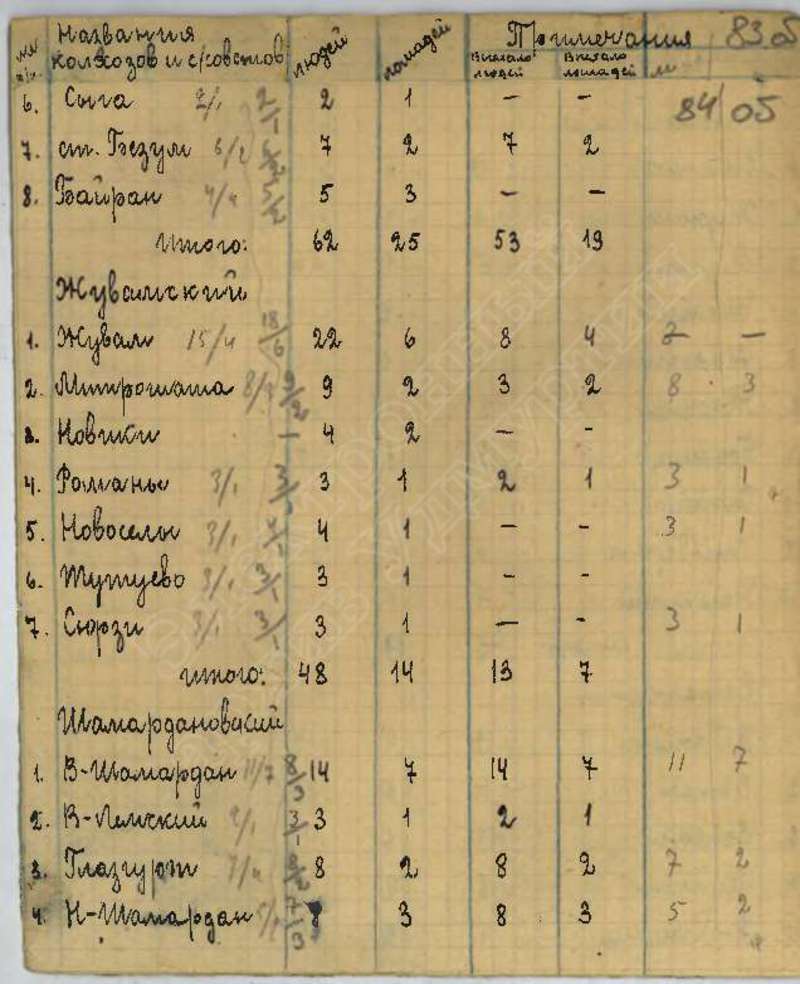 №№ п/п Названия колхозов и с/советов людей лошадей Примечания 83 об
Выехало людей Выехало лошадей
6. Сыга 2/1 2/1 2 1 — — 84 об
7. ст. Безум 6/2 7 2 7 2
8. Байран 4/4 5/2 5 3 — —
итого: 62 25 53 19
Жувамский
1. Жувам 15/4 18/6 22 6 8 4 —
2. Митрошата 9/2 9 2 3 2 8 3
3. Новики — 4 2 — -
4. Романы 3/1 3 1 2 1 3 1
5. Новоселы 3/1 4/1 4 1 — - 3 1
6. Тутуево 3/1 3/1 3 1 - -
7. Сюрзи 3/1 3/1 3 1 — - 3 1
итого: 48 14 13 7
Шамардановский
1. В-Шамардан 11/7 8/3 14 7 14 7 11 7
2. В-Лемский 2/1 3/1 3 1 2 1
3. Глазгурт 7/4 8/2 8 2 8 2 7 2
4. Н-Шамардан 7/3 3 8 3 5 2